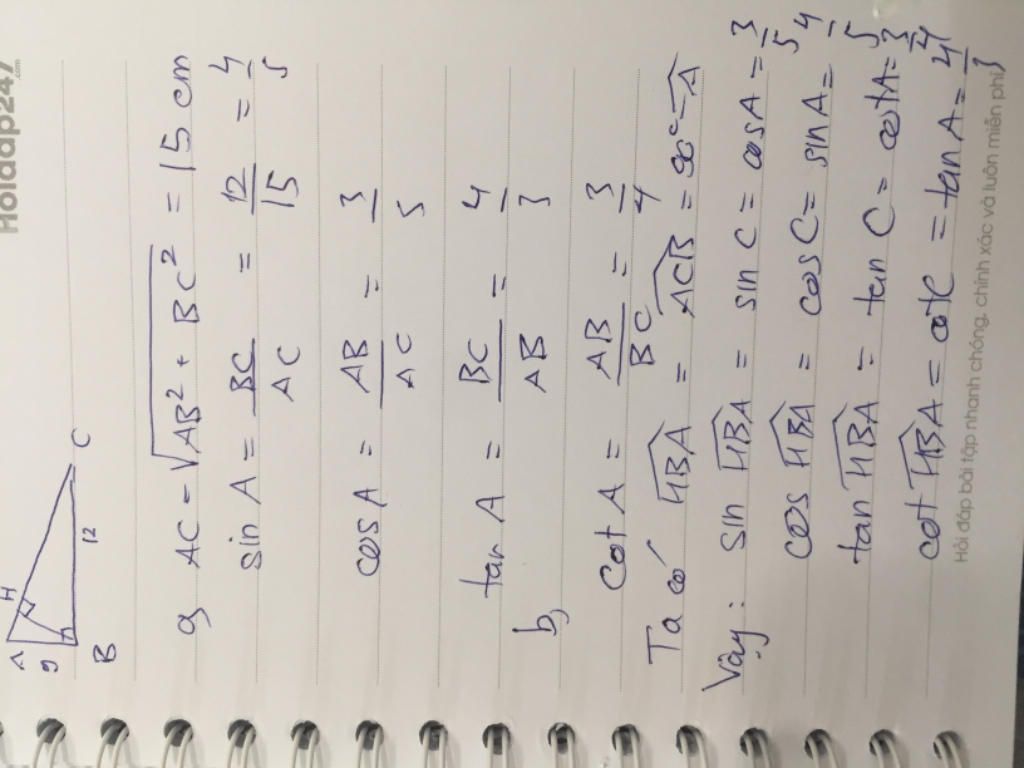 Hoidap247
.com
A
H
9
B
12
C
a, AC = √AB² + BC² = 15 cm
sin A = BC/AC = 12/15 = 4/5
cos A = AB/AC = 3/5
tan A = BC/AB = 4/3
b,
cot A = AB/BC = 3/4
Ta có HBA = ACB = 90° - A
Vậy: sin HBA = sin C = cosA = 3/5
cos HBA = cos C = sin A = 4/5
tan HBA = tan C = cotA = 3/4
cot HBA = cotC = tan A = 4/3
Hỏi đáp bài tập nhanh chóng, chính xác và luôn miễn phí